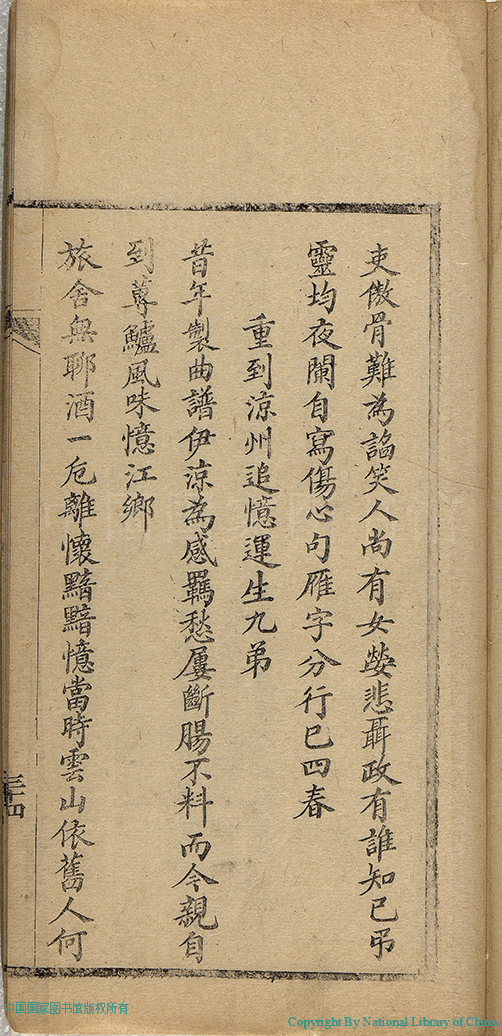 吏傲骨難為諂笑人尚有女嫈悲聶政有誰知已弔
靈均夜闌自寫傷心句雁字分行已四春
重到涼州追憶運生九弟
昔年製曲譜伊涼為感羈愁屢斷腸不料而今親自
到蓴鱸風味憶江鄉
旅舍無聊酒一卮離懷黯黯憶當時雲山依舊人何
三十四
中国国家图书馆版权所有
Copyright By National Library of China